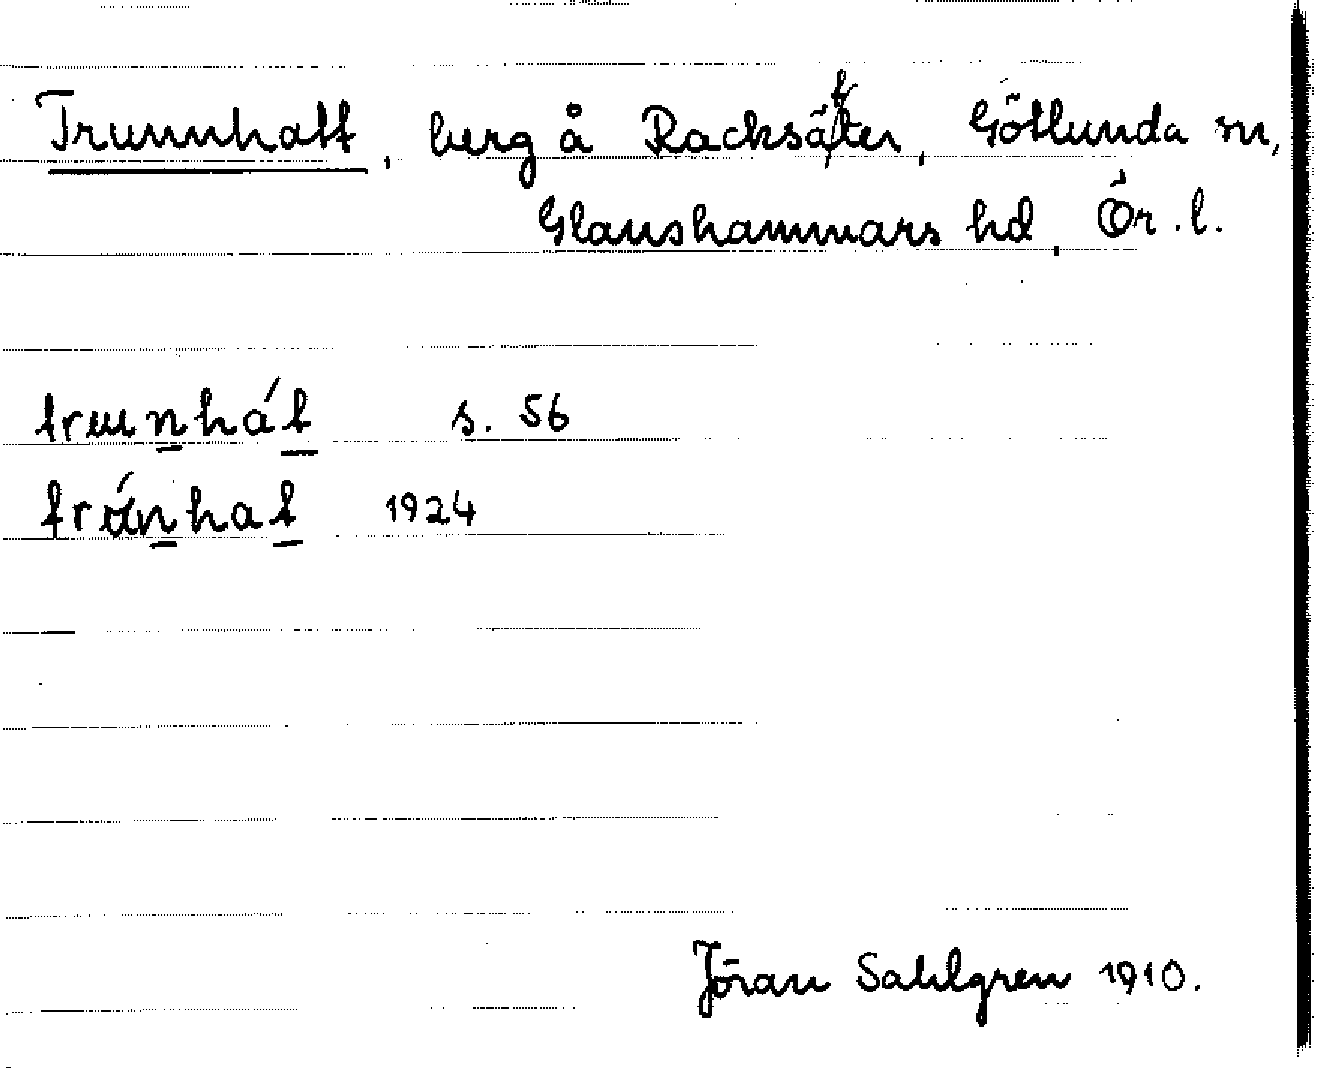 Trunnhatt, berg å Racksätter, Götlunda sn,
Glanshammars hd, Ör. l.
trunhát s. 56
tránhat 1924
Jöran Sahlgren 1910.